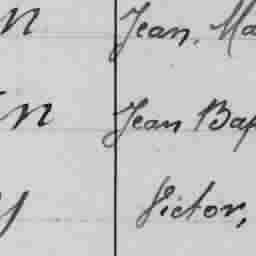 n Jean, Ma
n Jean Bap
y Victor,